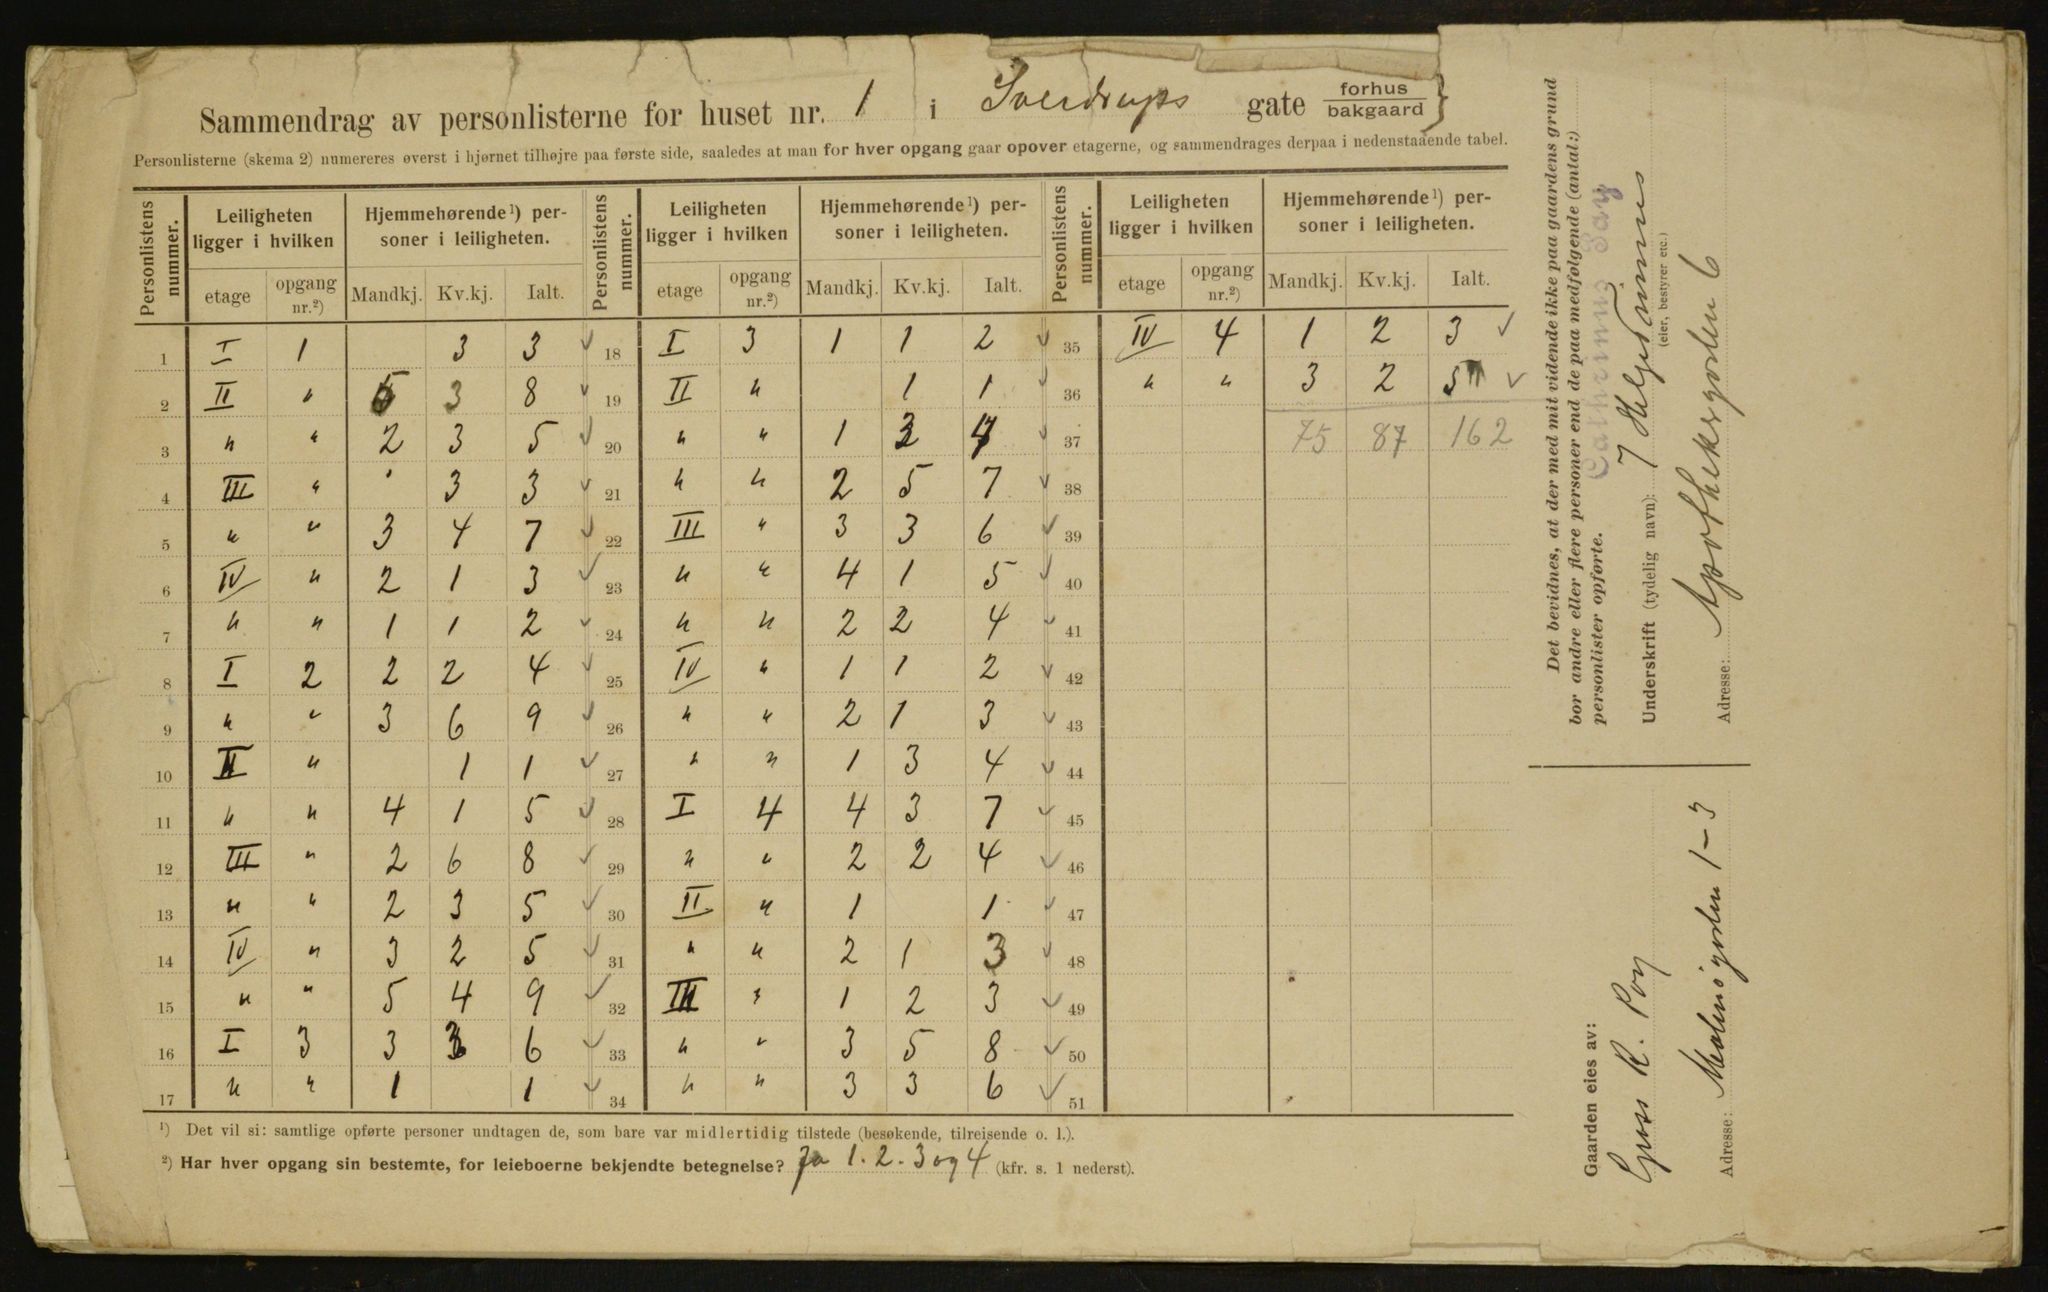 Sammendrag av personlisterne for huset nr. 1 i Sverdrups gate forhus bakgaard }
Personlisterne (skema 2) numereres øverst i hjørnet tilhøjre paa første side, saaledes at man for hver opgang gaar opover etagerne, og sammendrages derpaa i nedenstaaende tabel.
Personlistens nummer. Leiligheten ligger i hvilken Hjemmehørende¹) personer i leiligheten. Personlistens nummer. Leiligheten ligger i hvilken Hjemmehørende¹) personer i leiligheten. Personlistens nummer. Leiligheten ligger i hvilken Hjemmehørende¹) personer i leiligheten.
etage opgang nr.²) Mandkj. Kv.kj. Ialt. etage opgang nr.²) Mandkj. Kv.kj. Ialt. etage opgang nr.²) Mandkj. Kv.kj. Ialt.
1 I 1 3 3 ✓ 18 I 3 1 1 2 ✓ 35 IV 4 1 2 3 ✓
2 II " 5 3 8 ✓ 19 II " 1 1 ✓ 36 " " 3 2 5 ✓
3 " " 2 3 5 ✓ 20 " " 1 3 4 ✓ 37 75 87 162
4 III " 3 3 ✓ 21 " " 2 5 7 ✓ 38
5 " " 3 4 7 ✓ 22 III " 3 3 6 ✓ 39
6 IV " 2 1 3 ✓ 23 " " 4 1 5 ✓ 40
7 " " 1 1 2 ✓ 24 " " 2 2 4 ✓ 41
8 I 2 2 2 4 ✓ 25 IV " 1 1 2 ✓ 42
9 " " 3 6 9 ✓ 26 " " 2 1 3 ✓ 43
10 II " 1 1 ✓ 27 " " 1 3 4 ✓ 44
11 " " 4 1 5 ✓ 28 I 4 4 3 7 ✓ 45
12 III " 2 6 8 ✓ 29 " " 2 2 4 ✓ 46
13 " " 2 3 5 ✓ 30 II " 1 1 ✓ 47
14 IV " 3 2 5 ✓ 31 " " 2 1 3 ✓ 48
15 " " 5 4 9 ✓ 32 III " 1 2 3 ✓ 49
16 I 3 3 3 6 ✓ 33 " " 3 5 8 ✓ 50
17 " " 1 1 ✓ 34 " " 3 3 6 ✓ 51
¹) Det vil si: samtlige opførte personer undtagen de, som bare var midlertidig tilstede (besøkende, tilreisende o. l.).
²) Har hver opgang sin bestemte, for leieboerne bekjendte betegnelse? Ja 1. 2. 3 og 4 (kfr. s. 1 nederst).
Det bevidnes, at der med mit vidende ikke paa gaardens grund
bor andre eller flere personer end de paa medfølgende (antal:)
personlister opførte.
Underskrift (tydelig navn):
(eier, bestyrer etc.)
Adresse: Apothekergaden 6
Gaarden eies av:
R.
Adresse: 1-3